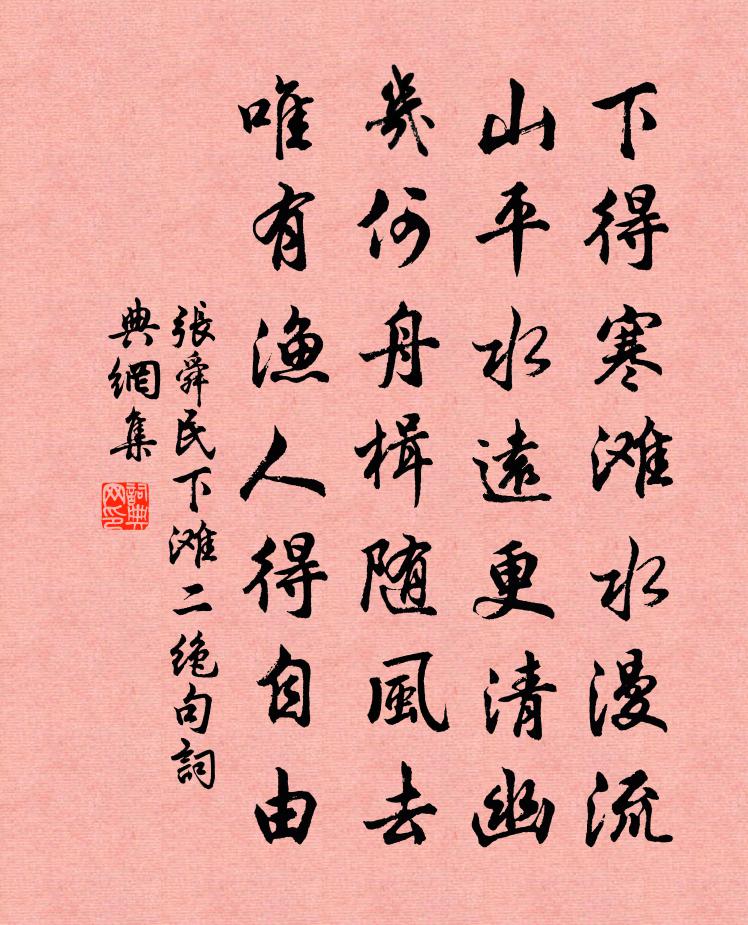 下得寒滩水漫流
山平水遠更清幽
幾何舟楫随風去
唯有渔人得自由
張舜民下滩二绝句詞
典網集
詞典
网印